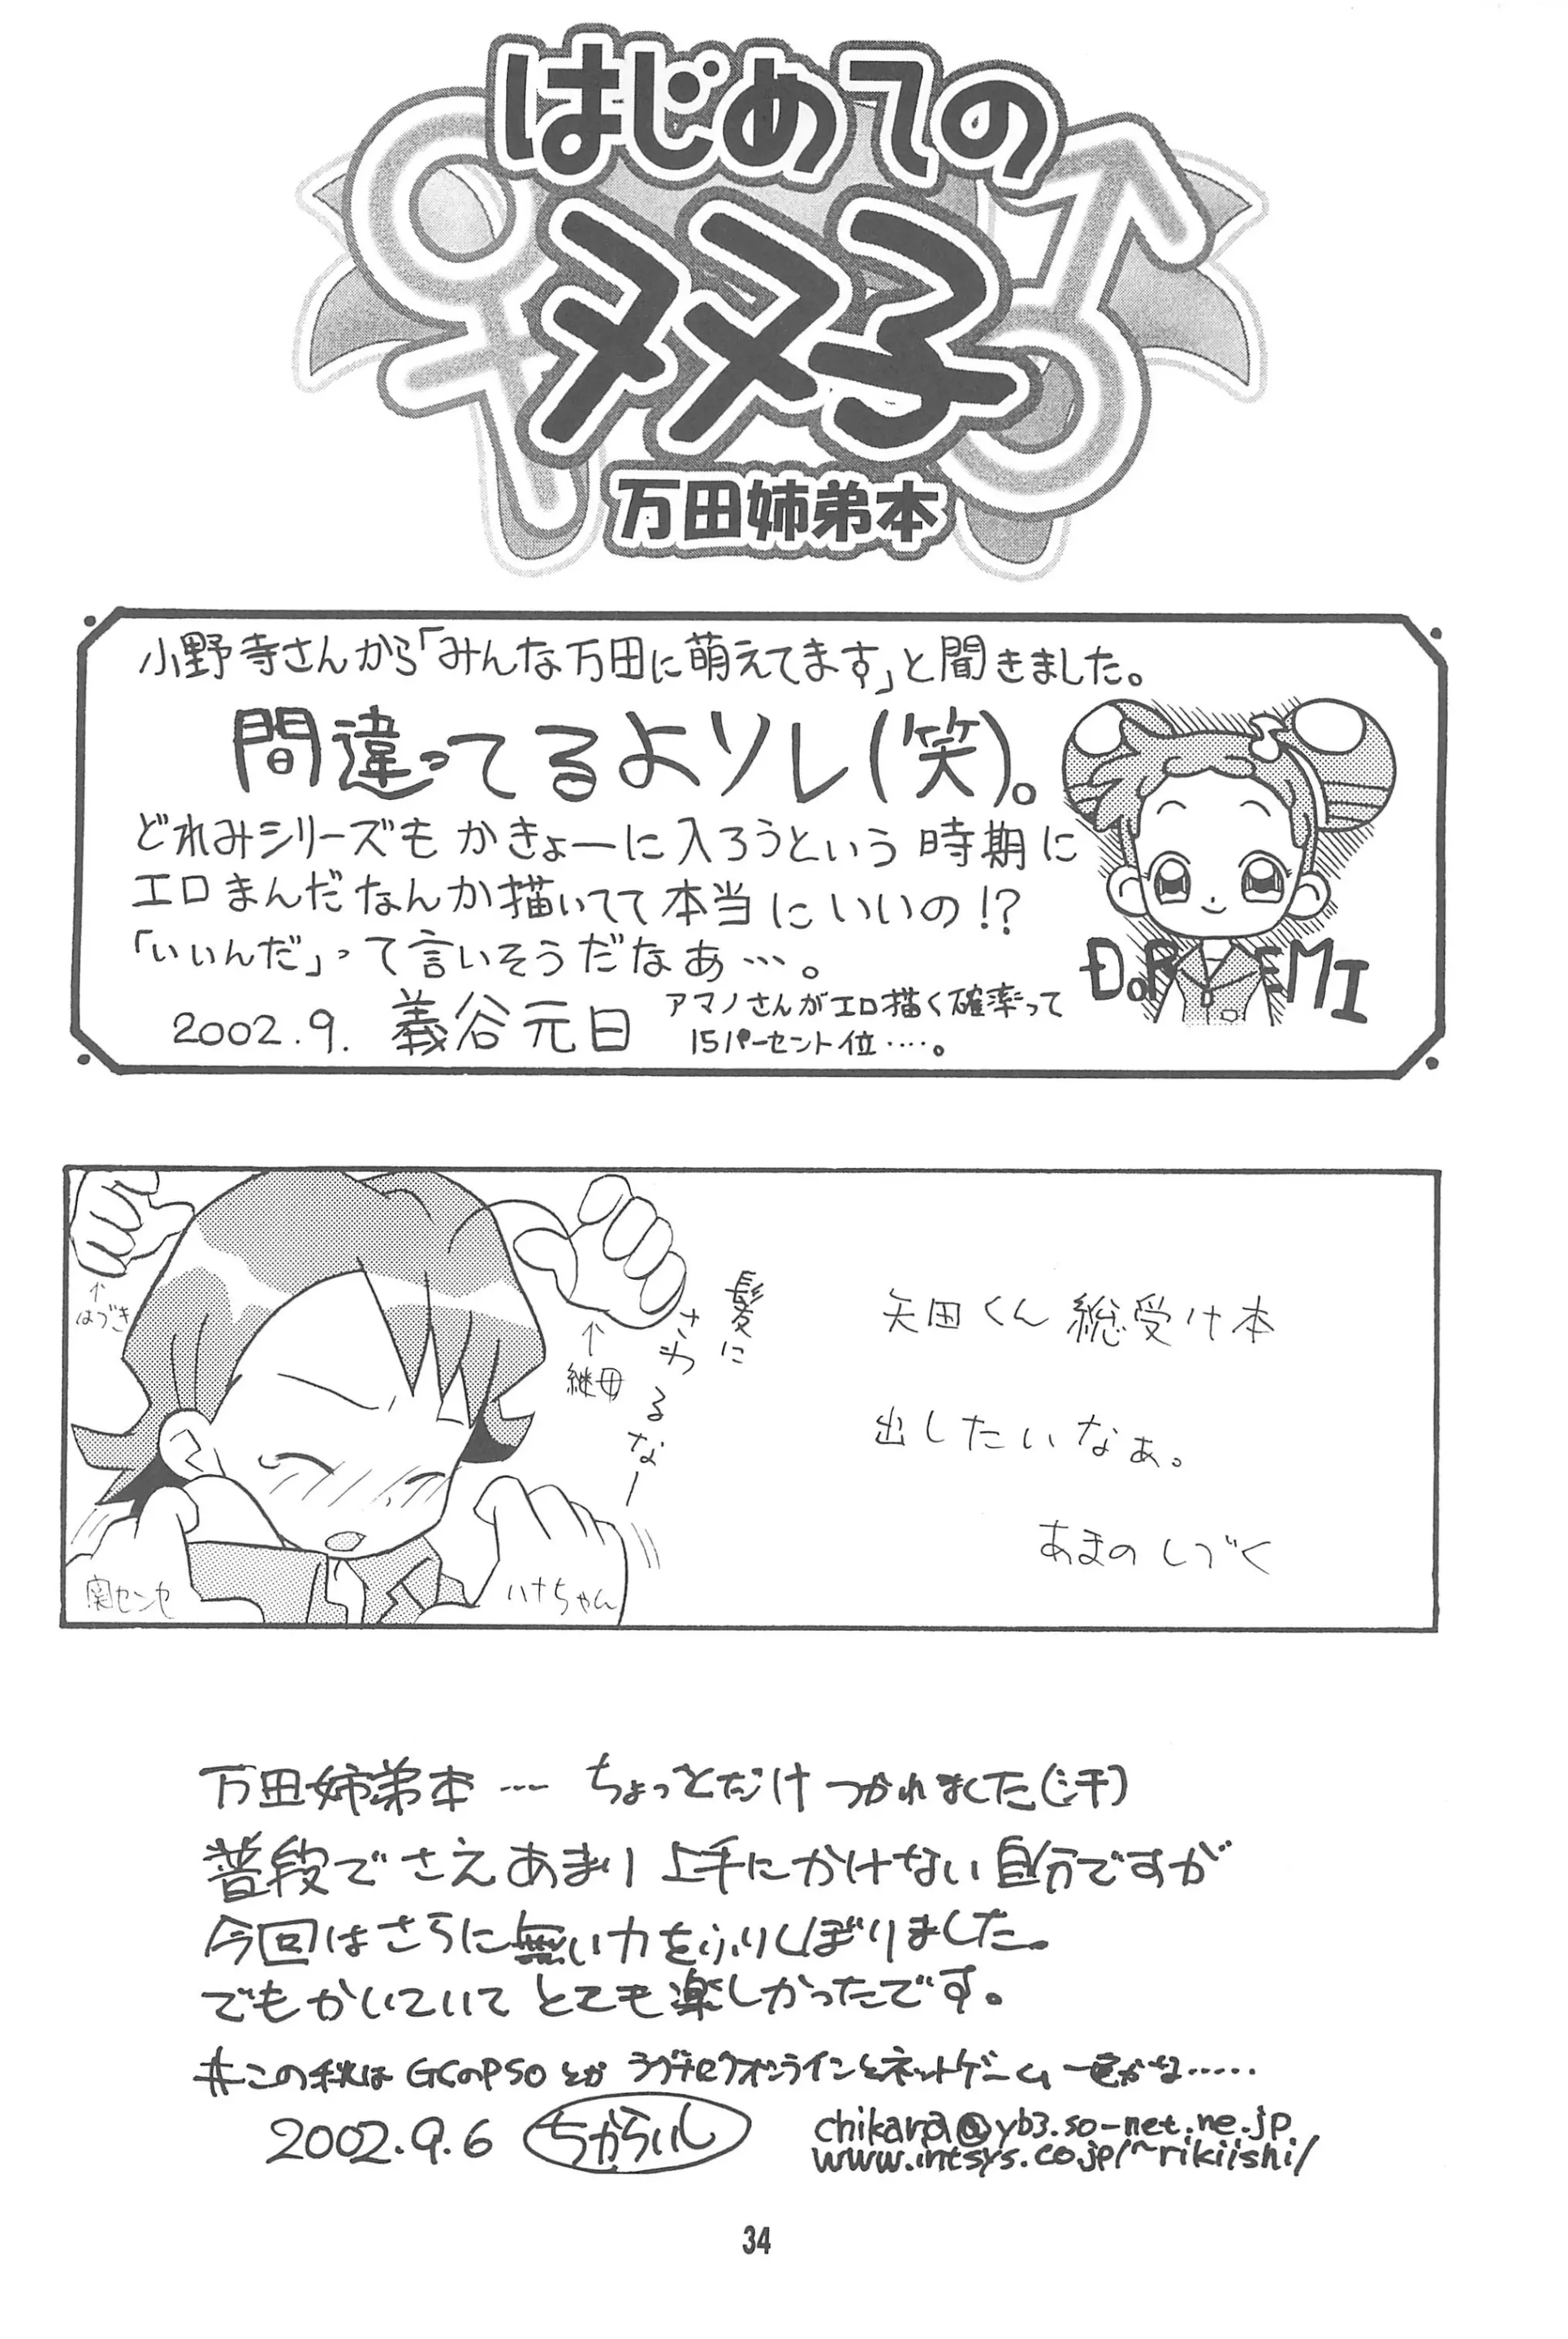 はじめての
双子
万田姉弟本
小野寺さんから「みんな万田に萌えてます」と聞きました。
間違ってるよソレ(笑)。
どれみシリーズもかきょーに入ろうという時期に
エロまんだなんか描いてて本当にいいの!?
「いいんだ」って言いそうだなあ…。
2002.9. 義谷元日
アマノさんがエロ描く確率って
15パーセント位‥‥。
DoREMI
↑
はづき
↑
継母
髪に
さわるなー
関センセ
ハナちゃん
矢田くん総受け本
出したいなぁ。
あまのしづく
万田姉弟本… ちょっとだけつかれました(汗)
普段でさえあまり上手にかけない自分ですが
今回はさらに無い力をふりしぼりました。
でもかいていてとても楽しかったです。
#この秋はGCのPSOとか ラグナロクオンラインとネットゲーム一色かな……
2002.9.6 ちからいし
chikara@yb3.so-net.ne.jp
www.intsys.co.jp/~rikiishi/
34